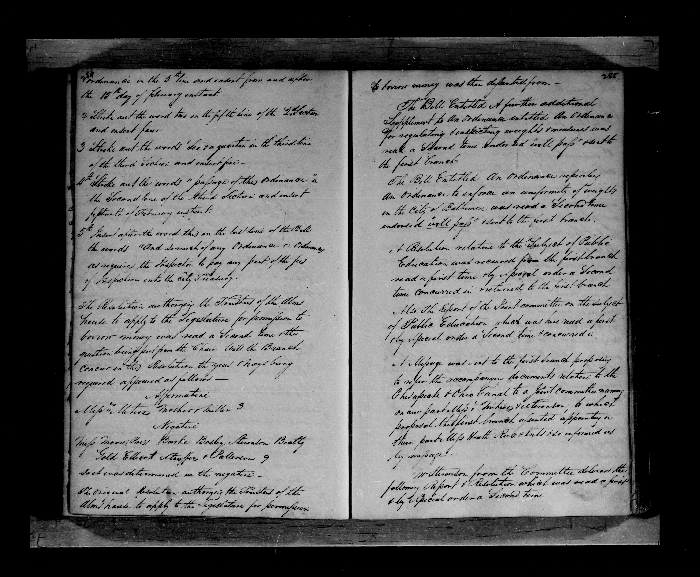 ordinance in the 3rd line and insert from and after
the 15th day of February instant
2 Strike out the word two on the fifth line of the 2d Section
and insert four
3 Strike out the words six a quarter in the third line
of the third Section and insert five
4th Strike out the words "passage of this Ordinance" in
the Second line of the third Section and insert
fifteenth of February instant
5th Insert after the word this on the last line of the Bill
the words "And so much of any Ordinance or Ordinances
as requires the Inspector to pay any part of the fees
of Inspection into the City Treasury.
The Resolution authorizing the Trustees of the Alms
house to apply to the Legislature for permission to
borrow money was read a Second time & the
question being put from the Chair Will the Branch
concur in this Resolution the yeas & nays being
required appeared as follows
Affirmative
Messrs Mosher & Miller 3
Negative
Messrs Moore Burke Bosley Stevenson Beatty
Todd Elbert Stouffer & Patterson 9
so it was determined in the negative
The original Resolution authorizing the Trustees of the
Alms house to apply to the Legislature for permission
285
to borrow money was then dissented from
The Bill Entitled A further additional
Supplement to An Ordinance entitled An Ordinance
for regulating & inspecting weights & measures was
read a Second time endorsed will pass & sent to
the first branch
The Bill Entitled An Ordinance repealing
An Ordinance to enforce an uniformity of weights
in the City of Baltimore was read a Second time
endorsed will pass & sent to the first branch
A Resolution relative to the Subject of Public
Education was received from the first branch
read a first time & by special order a Second
time concurred in & returned to the first branch
Also the report of the Joint committee on the subject
of Public Education which was read a first
& by special order a Second time & concurred in
A Message was sent to the first branch proposing
to refer the accompanying documents relative to the
Chesapeake & Ohio Canal to a Joint committee naming
on our part Messrs & Stevenson, to which
proposal the first branch assented appointing on
their part Messrs Heath & informed us
by message
Mr Stevenson from the Committee delivered the
following Report & Resolution which was read a first
& by Special order a Second time